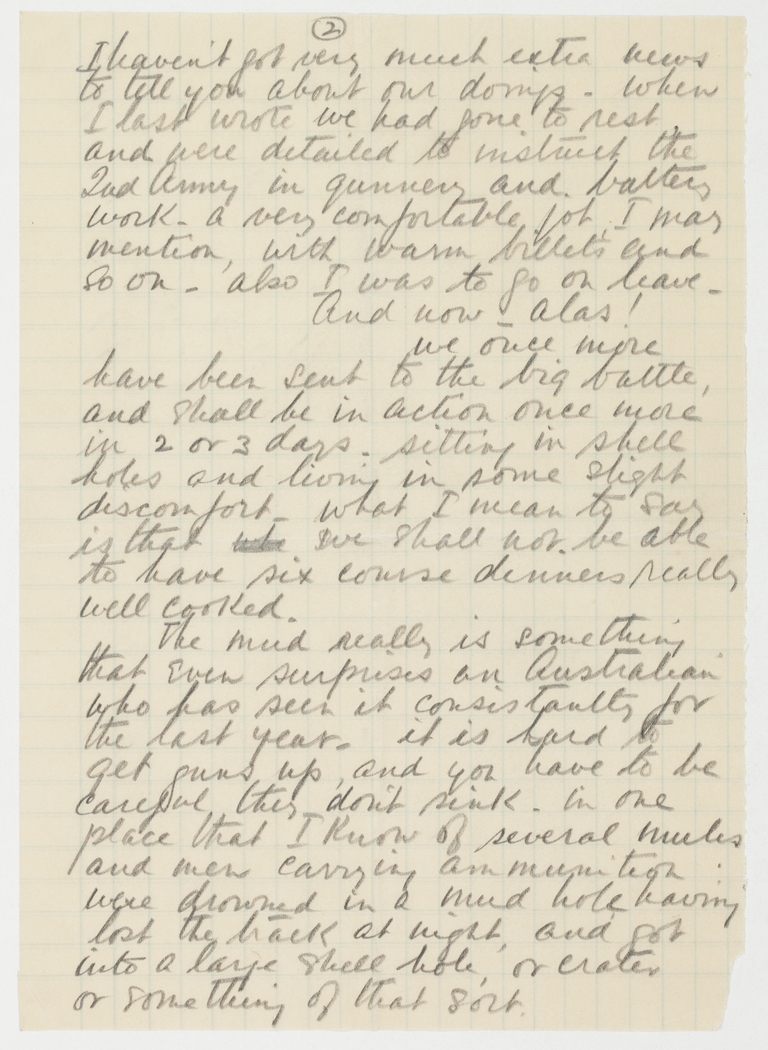 2
I haven't got very much extra news
to tell you about our doings - when
I last wrote we had gone to rest,
and were detailed to instruct the
2nd Army in gunnery and battery
work - a very comfortable job, I may
mention, with warm billets and
so on - also I was to go on leave -
And now - alas!
we once more
have been sent to the big battle,
and shall be in action once more
in 2 or 3 days - sitting in shell
holes and living in some slight
discomfort - what I mean to say
is that we shall not be able
to have six course dinners really
well cooked.
The mud really is something
that even surprises an Australian
who has seen it consistantly for
the last year. it is hard to
get guns up, and you have to be
careful they don't sink - in one
place that I know of several mules
and men carrying ammunition
were drowned in a mud hole, having
lost the track at night, and got
into a large shell hole, or crater
or something of that sort.